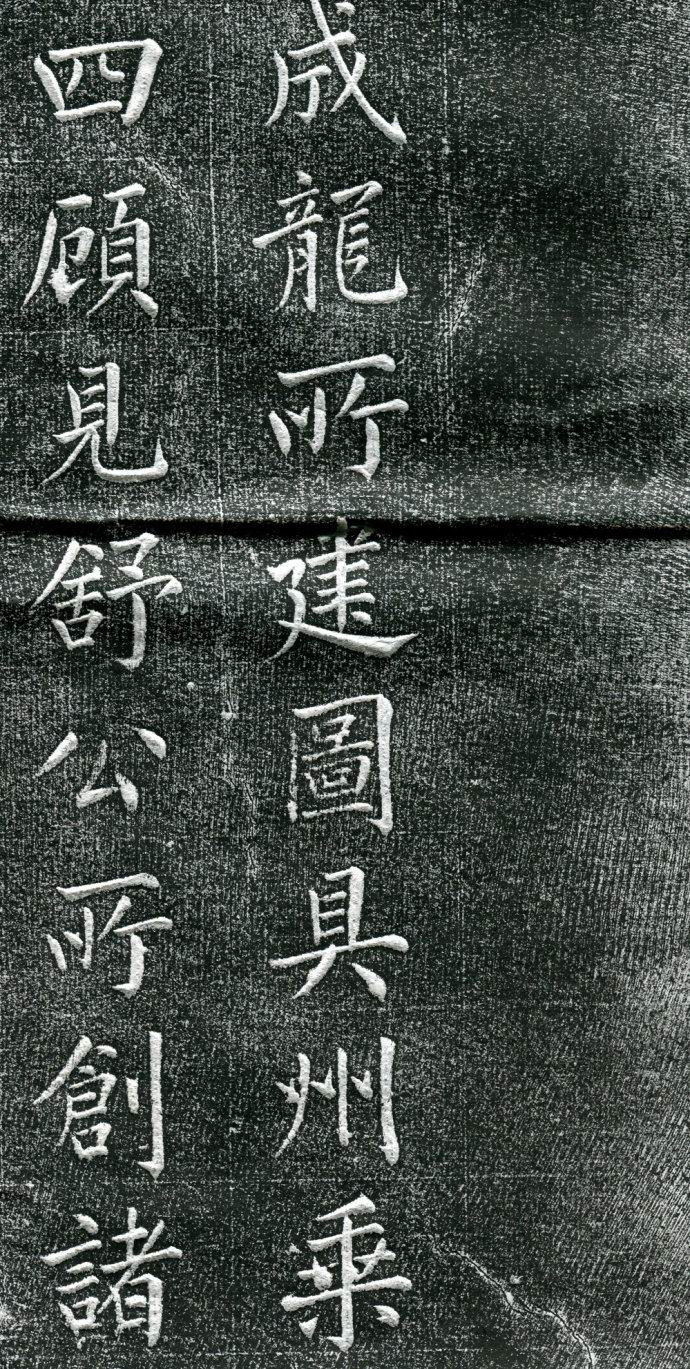 成龍所建圖具州乘
四顧見舒公所創諸